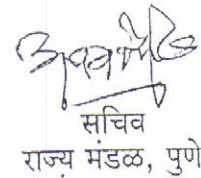 सचिव
राज्य मंडळ, पुणे